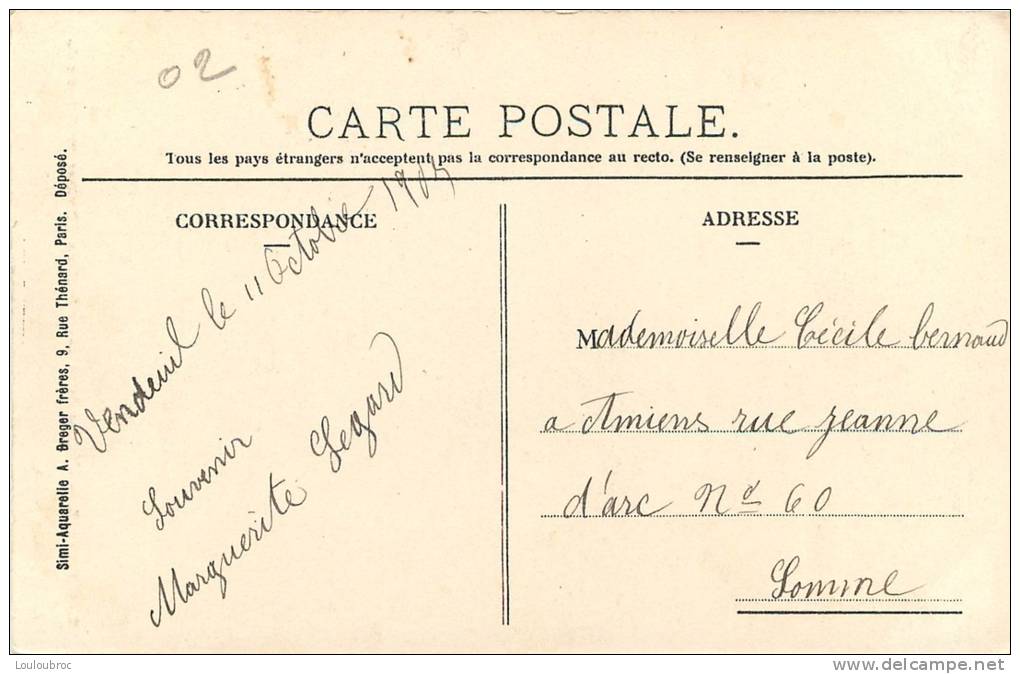 02
CARTE POSTALE.
Tous les pays étrangers n'acceptent pas la correspondance au recto. (Se renseigner à la poste).
CORRESPONDANCE
Vendeuil le 11 Octobre
Souvenir
Marguerite Segard
ADRESSE
Mademoiselle Cécile bernaud
a Amiens rue jeanne
d'arc No 60
Somme
Simi-Aquarelle A. Breger frères, 9, Rue Thénard, Paris. Déposé.
Louloubroc
http://www.delcampe.net